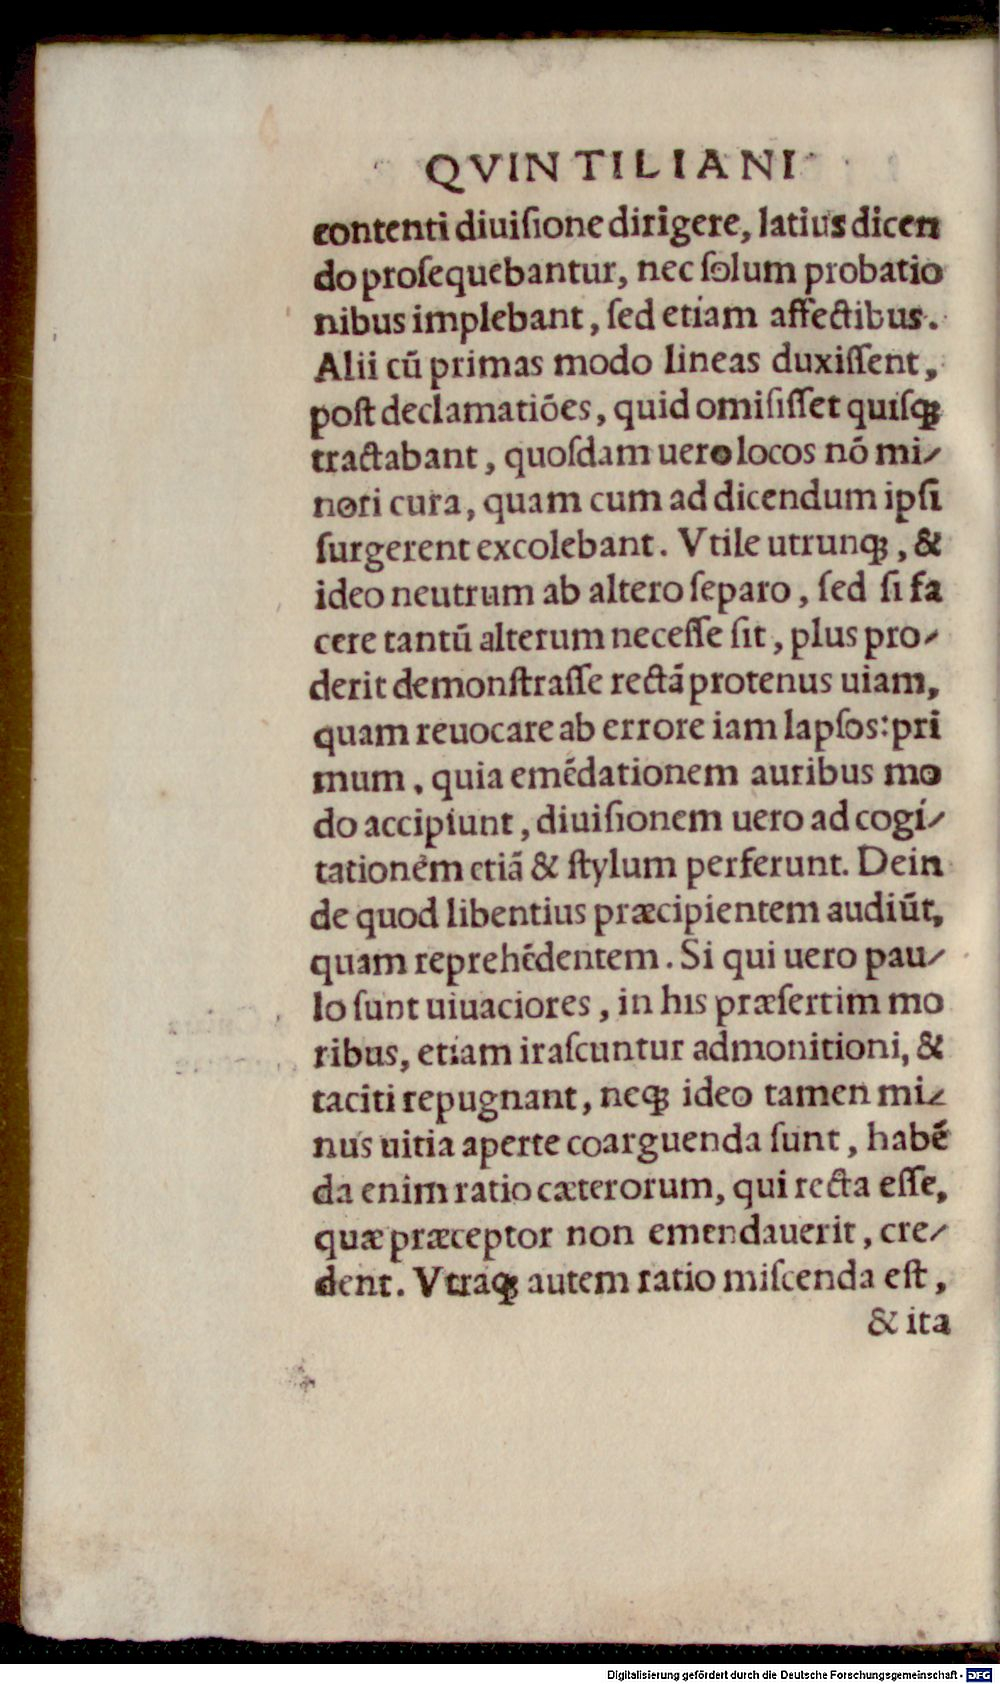 QVINTILIANI
contenti diuiſione dirigere, latius dicen
do proſequebantur, nec ſolum probatio
nibus implebant, ſed etiam affectibus.
Alii cū primas modo lineas duxiſſent,
poſt declamatiōes, quid omiſiſſet quiſqꝫ
tractabant, quoſdam uero locos nō mi⸗
nori cura, quam cum ad dicendum ipſi
ſurgerent excolebant. Vtile utrunqꝫ, &
ideo neutrum ab altero ſeparo, ſed ſi fa
cere tantū alterum neceſſe ſit, plus pro⸗
derit demonſtraſſe rectā protenus uiam,
quam reuocare ab errore iam lapſos: pri
mum, quia emēdationem auribus mo
do accipiunt, diuiſionem uero ad cogi⸗
tationem etiā & ſtylum perferunt. Dein
de quod libentius præcipientem audiūt,
quam reprehēdentem. Si qui uero pau⸗
lo ſunt uiuaciores, in his præſertim mo
ribus, etiam iraſcuntur admonitioni, &
taciti repugnant, neqꝫ ideo tamen mi⸗
nus uitia aperte coarguenda ſunt, habē
da enim ratio cæterorum, qui recta eſſe,
quæ præceptor non emendauerit, cre⸗
dent. Vtraqꝫ autem ratio miſcenda eſt,
& ita
Digitalisierung gefördert durch die Deutsche Forschungsgemeinschaft - DFG